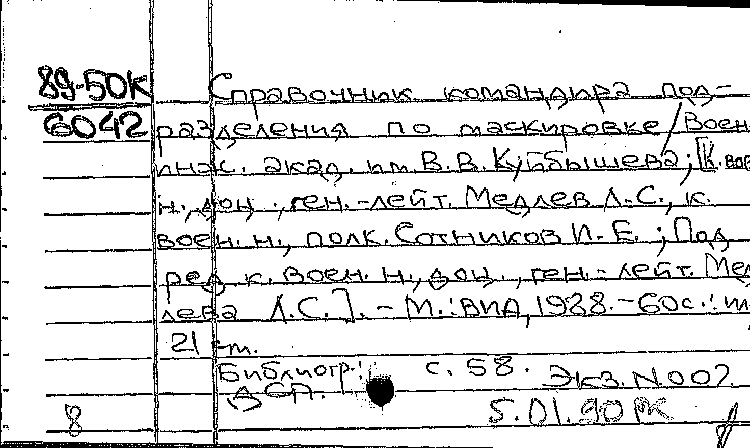 89-50К
6042
Справочник командира под-
разделения по маскировке / Воен.
инж. акад. им. В. В. Куйбышева; [К. вое
н., доц., ген.-лейт. Медлев Л. С., к.
воен. н., полк. Сотников И. Е.; Под
ред. к. воен. н., доц., ген.-лейт. Мед
лева Л. С.]. – М.: ВИА, 1988. – 60 с.:
21 см.
Библиогр.: с. 58.
ДСП.
Экз. N 007
5.01.90
8